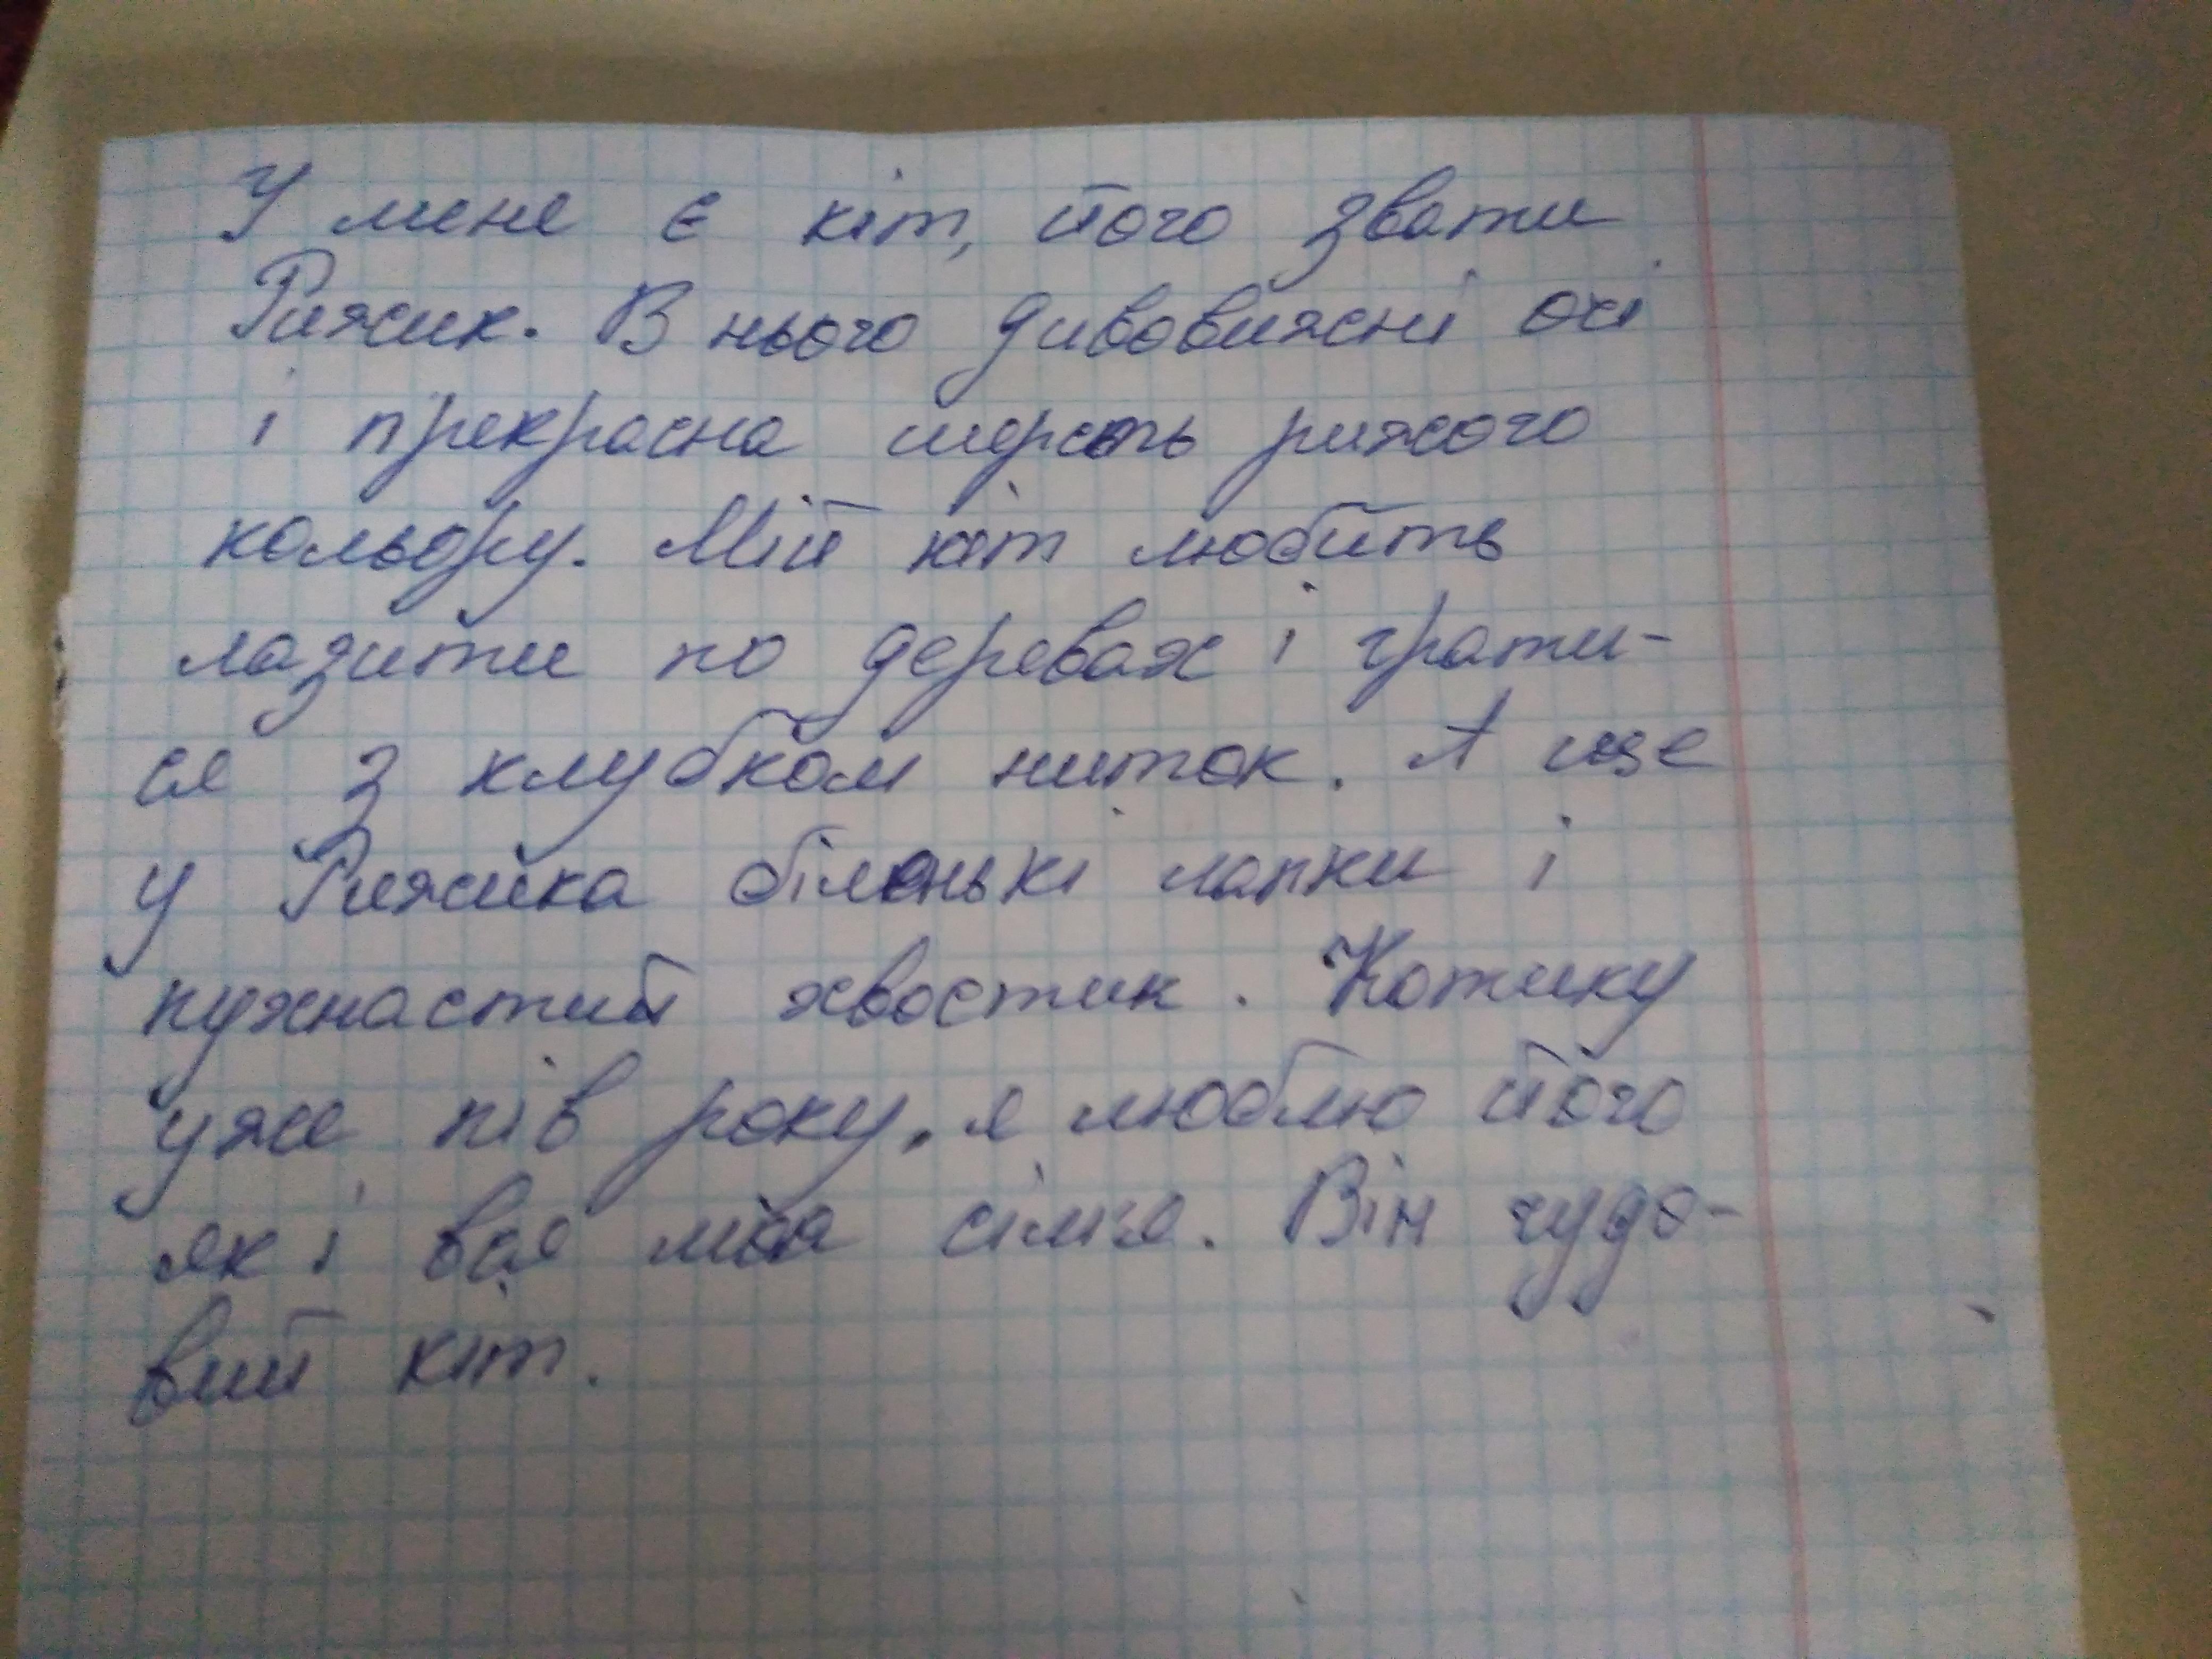 У мене є кіт, його звати
Рижик. В нього дивовижні очі
і прекрасна шерсть рижого
кольору. Мій кіт любить
лазити по деревах і грати-
ся з клубком ниток. А ще
у Рижика біленькі лапки і
пухнастий хвостик. Котику
уже пів року, я люблю його
як і вся моя сімя. Він чудо-
вий кіт.